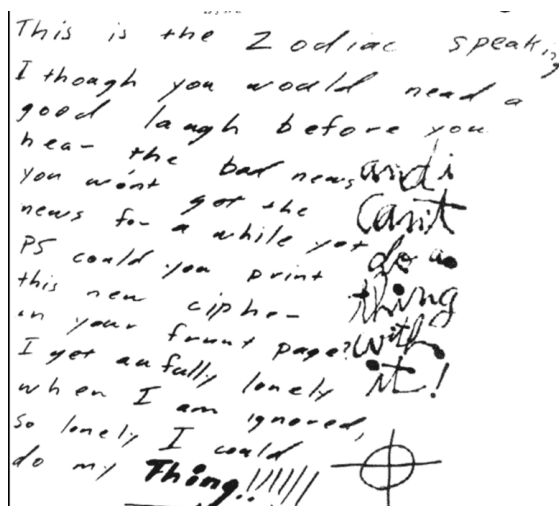 This is the Zodiac speaking
I though you would need a
good laugh before you
hea- the bad news
you won't get the
news for a while yet
PS could you print
this new ciphe-
in your frunt page?
I get aufully lonely
when I am ignored,
so lonely I could
do my Thing!!!!!!
and i
can't
do a
thing
with
it!